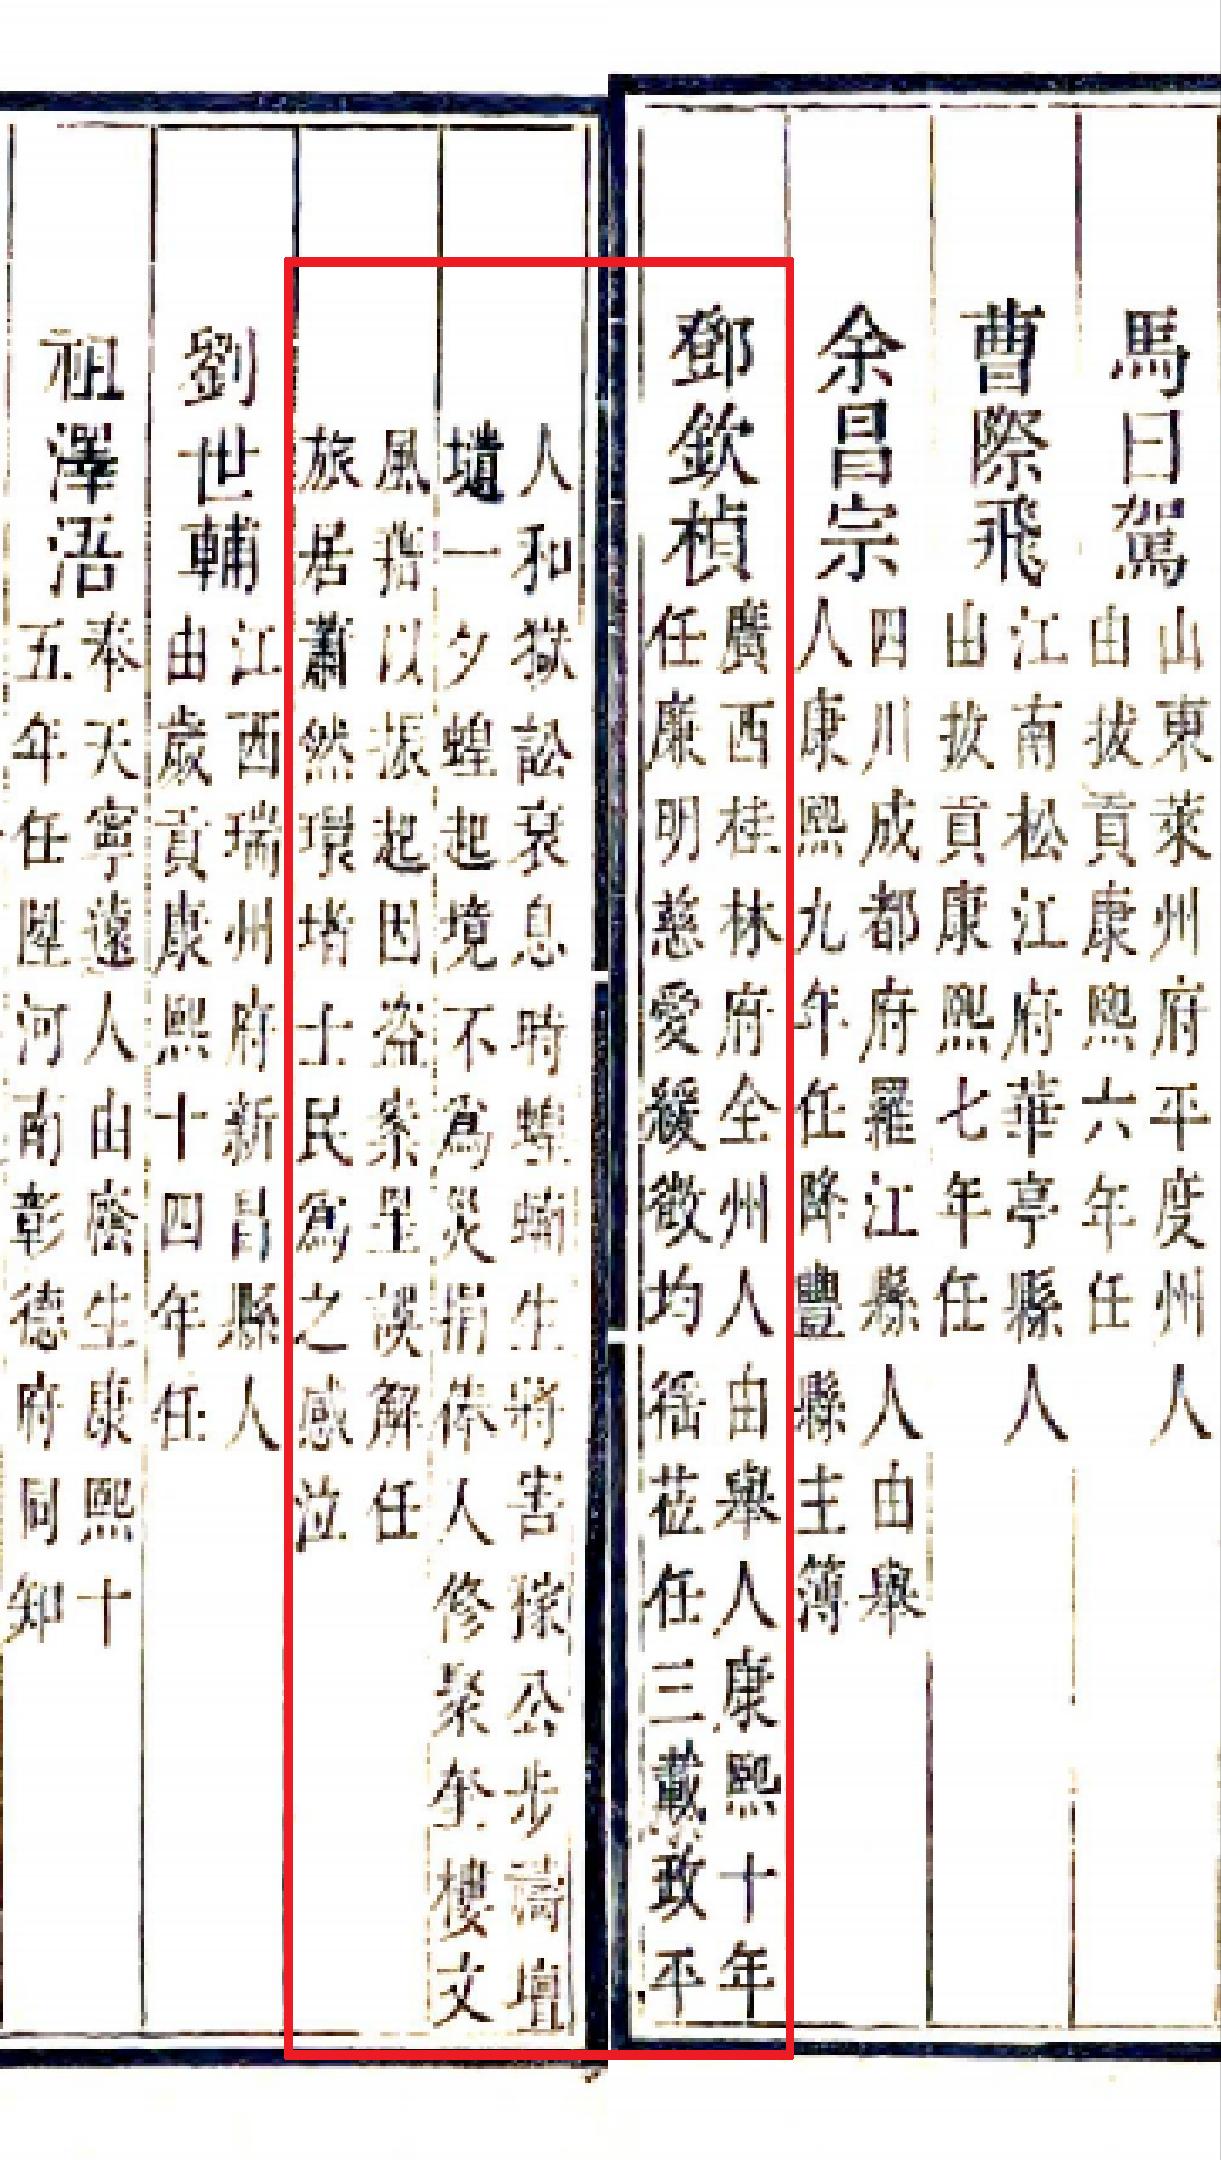 馬日駕
山東萊州府平度州人
由拔貢康熙六年任
曹際飛
江南松江府華亭縣人
由拔貢康熙七年任
余昌宗
四川成都府羅江縣人由舉
人康熙九年任降豐縣主簿
鄧欽楨
廣西桂林府全州人由舉人康熙十年
任廉明慈愛緩徵均徭莅任三載政平
人和獄訟衰息時蝗蝻生將害稼公步禱壇
壝一夕蝗起境不爲災捐俸人修聚奎樓文
風藉以振起因盜案罣誤解任
旅居蕭然環堵士民爲之感泣
劉世輔
江西瑞州府新昌縣人
由歲貢康熙十四年任
祖澤浯
奉天寧遠人由廕生康熙十
五年任陞河南彰德府同知